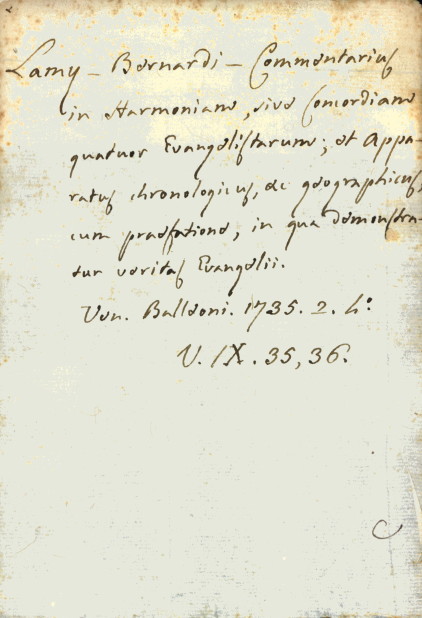 Lamy - Bernardi - Commentarius
in Harmoniam, sive Concordiam
quatuor Evangelistarum; et Appa-
ratus chronologicus, ac geographicus,
cum praefatione, in qua demonstra-
tur veritas Evangelii.
Ven. Balleoni. 1735. 2. 4:º
V. IX. 35, 36.